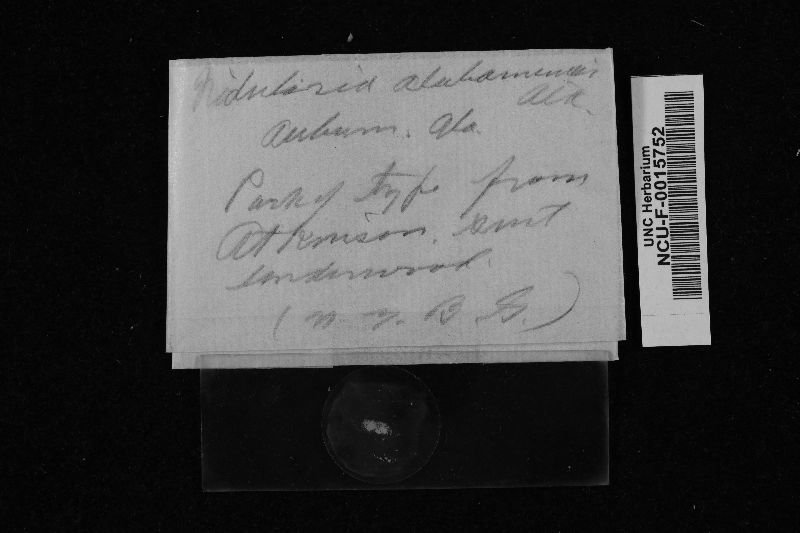 Nidularia alabamensis
Atk.
Auburn. Ala.
Part of type from
Atkinson. sent
Underwood.
(N. Y. B. G.)
UNC Herbarium
NCU-F-0015752